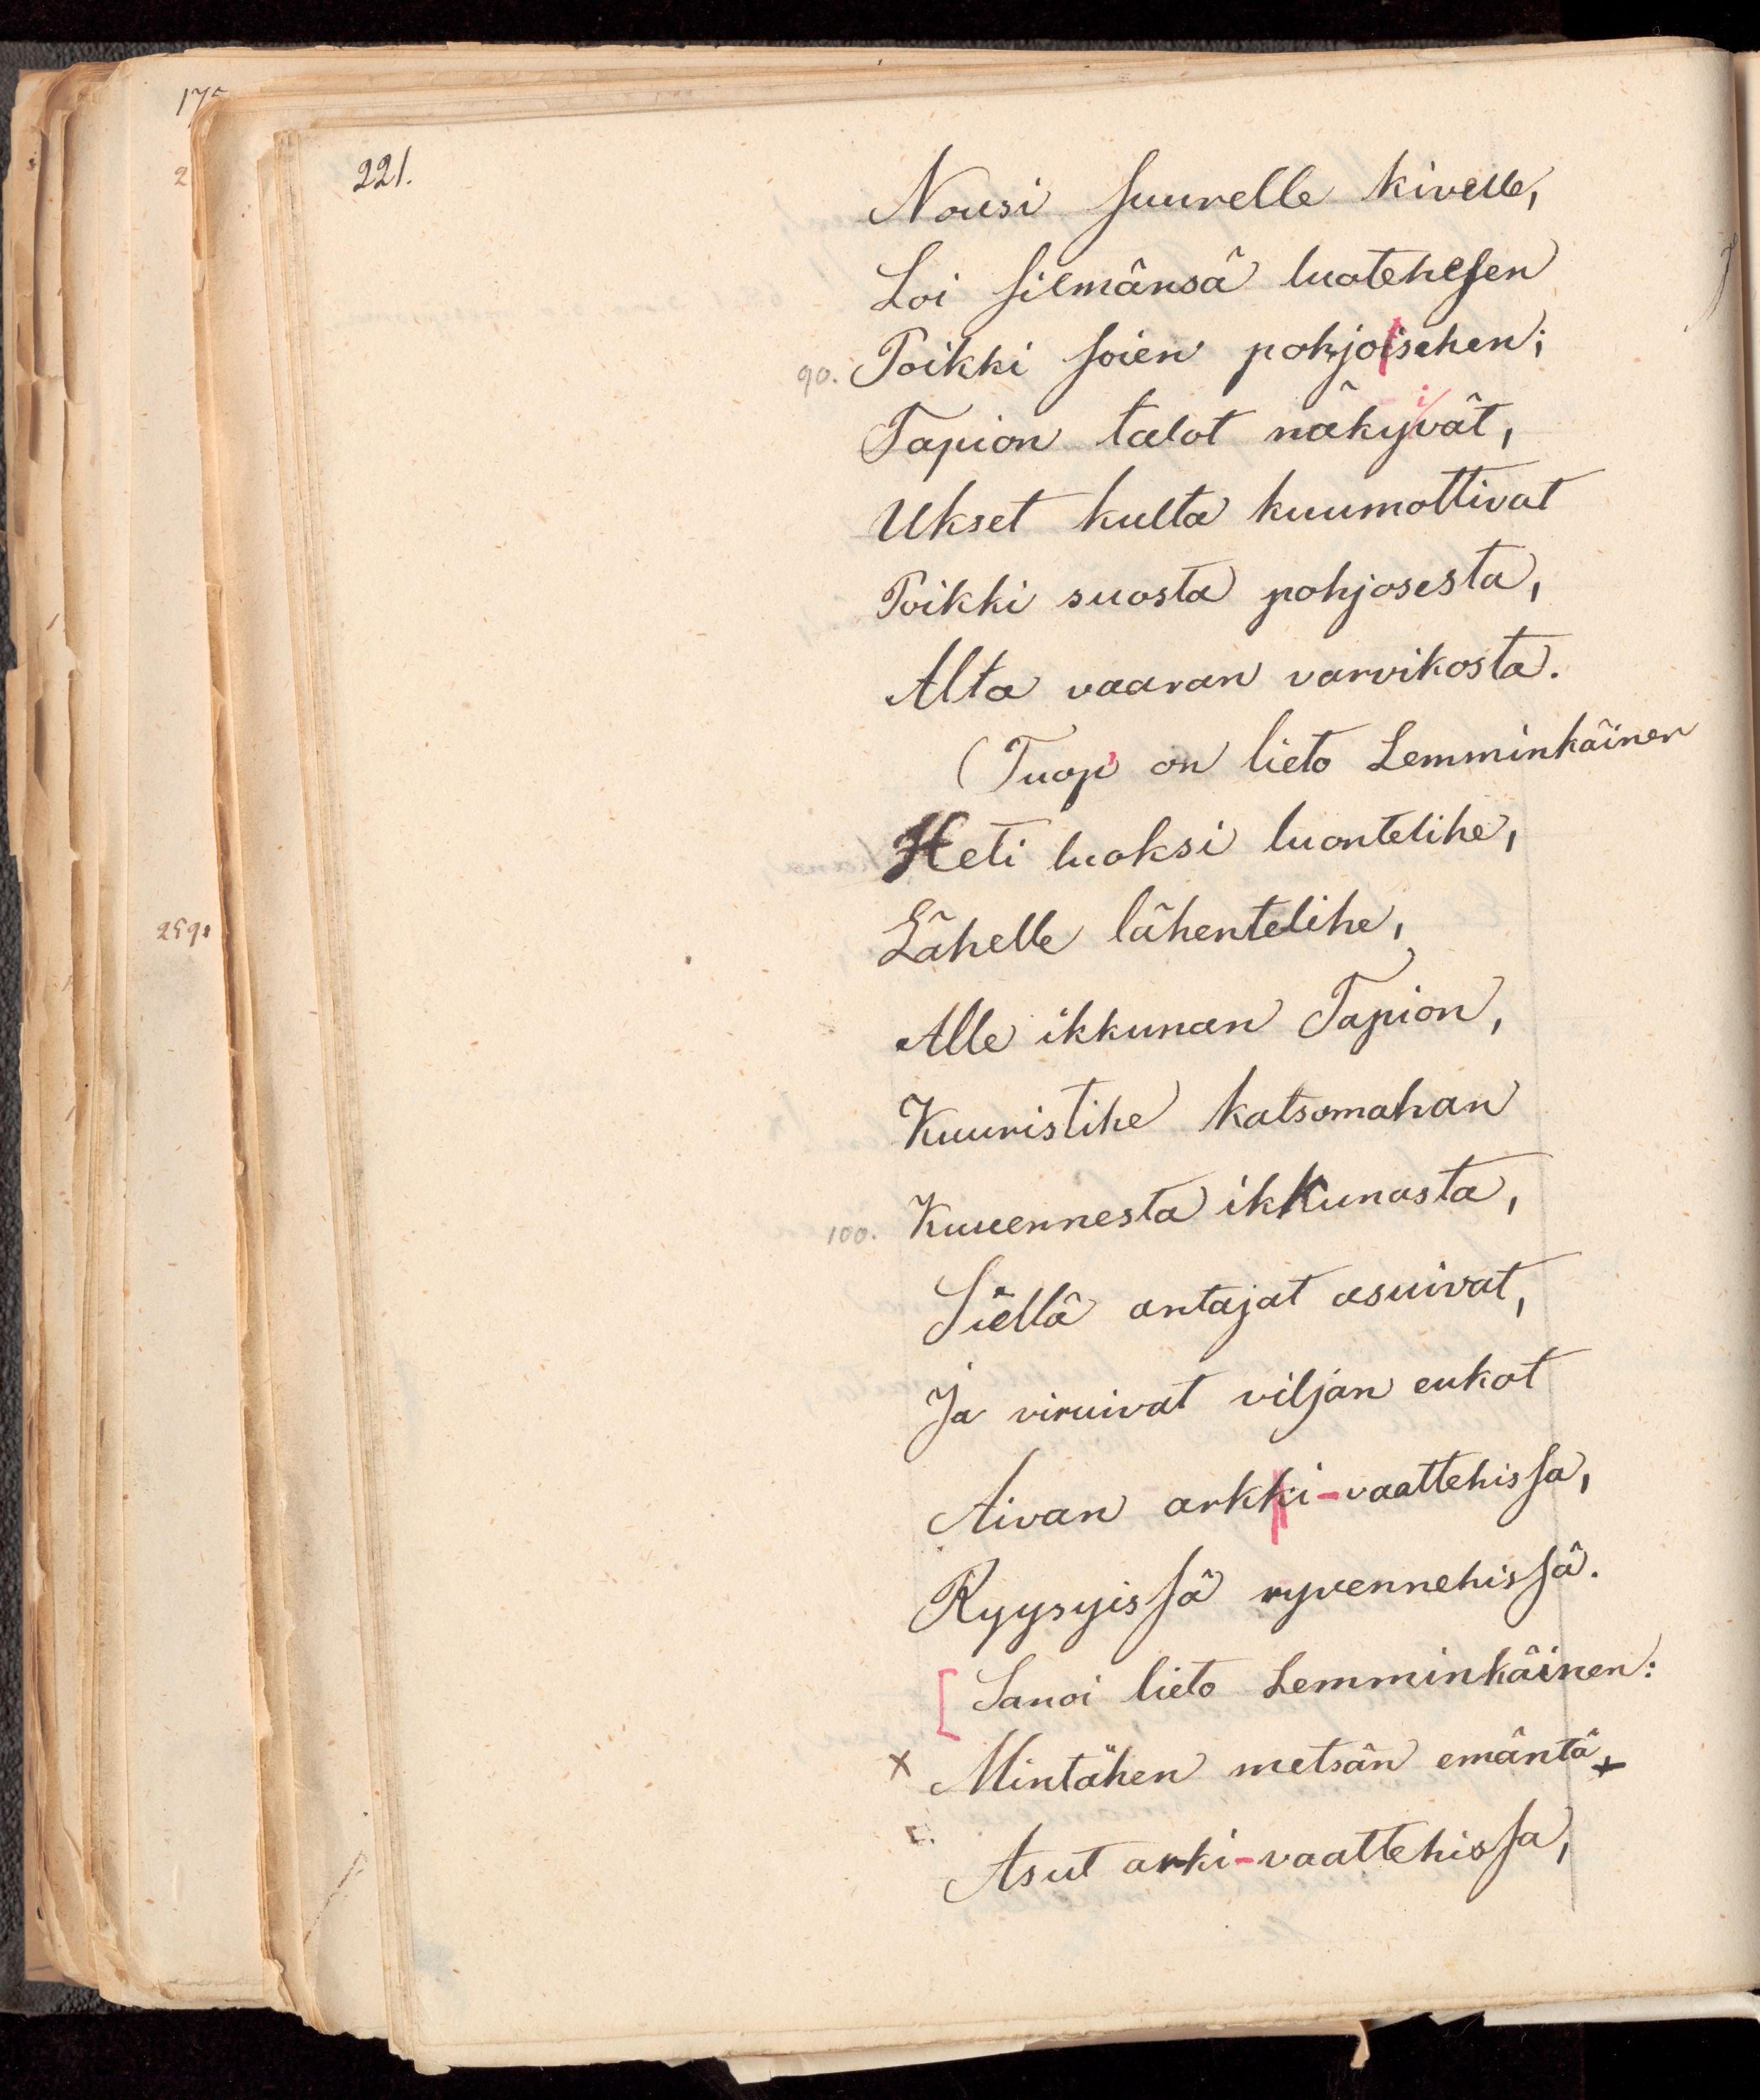 175
221.
2
Nousi suurelle kivelle,
Loi silmänsä luotehesen
90. Poikki soien pohjoisehen;
i/
Tapion talot näkyvät,
Ukset kulta kuumottivat
Poikki suosta pohjosesta,
Alta vaaran varvikosta.
(Tuop on lieto Lemminkäinen
Heti luoksi luontelihe,
Lähelle lähentelihe,
259.
Alle ikkunan Tapion,
Kuuristihe katsomahan
100. Kuuennesta ikkunasta,
Siellä antajat asuivat,
Ja viruivat viljan eukot
Aivan arkki-vaattehissa,
Ryysyissä ryvennehissä.
[ Sanoi lieto Lemminkäinen:
x Mintähen metsän emäntä +
Asut arki-vaattehissa,